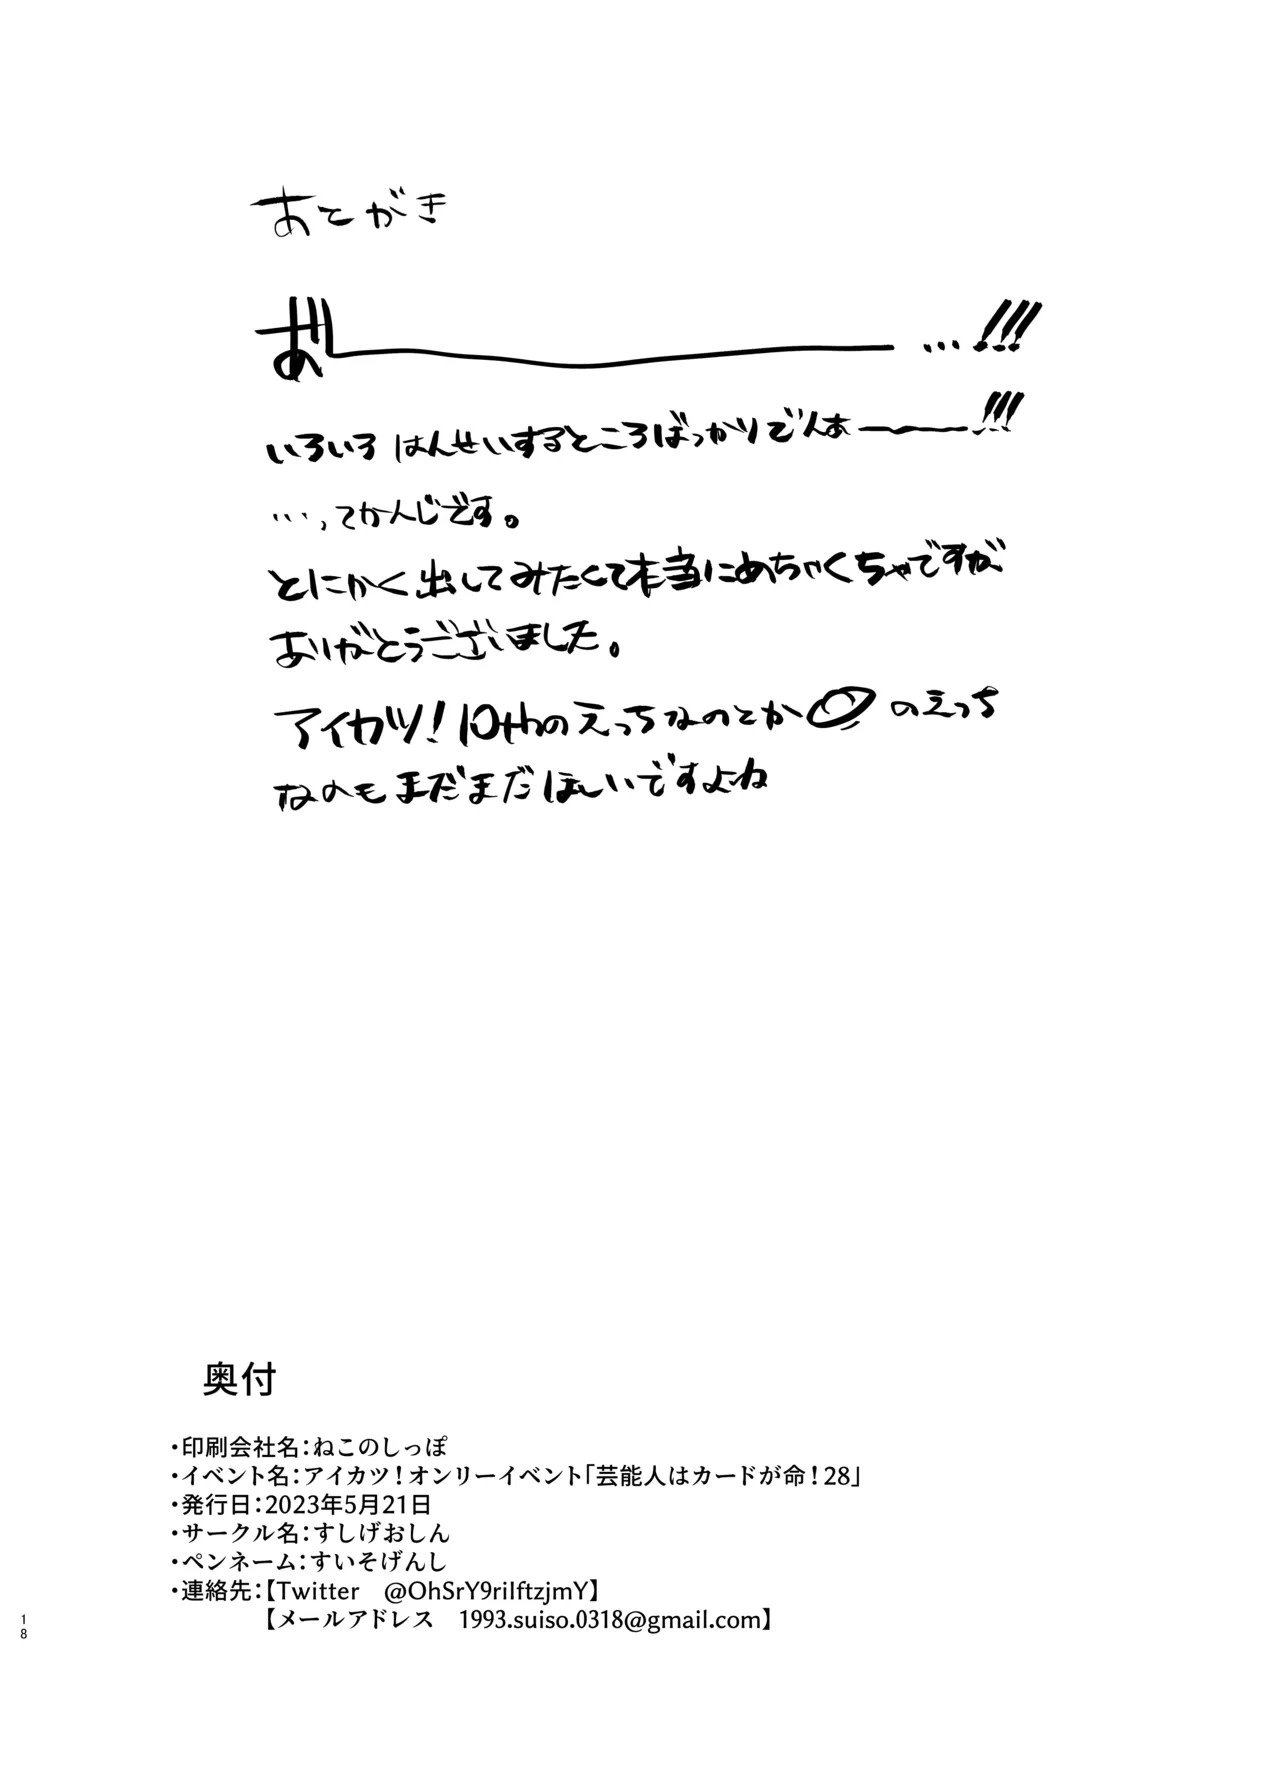 あとがき
あ゛ーーーーー…!!!
いろいろはんせいするところばっかりでんあ゛ーーー…!!!
…、てかんじです。
とにかく出してみたくて本当にめちゃくちゃですが
ありがとうございました。
アイカツ!10thのえっちなのとか のえっち
なのもまだまだほしいですよね
奥付
・印刷会社名：ねこのしっぽ
・イベント名：アイカツ！オンリーイベント「芸能人はカードが命！28」
・発行日：2023年5月21日
・サークル名：すしげおしん
・ペンネーム：すいそげんし
・連絡先：【Twitter　@OhSrY9riIftzjmY】
【メールアドレス　1993.suiso.0318@gmail.com】
18